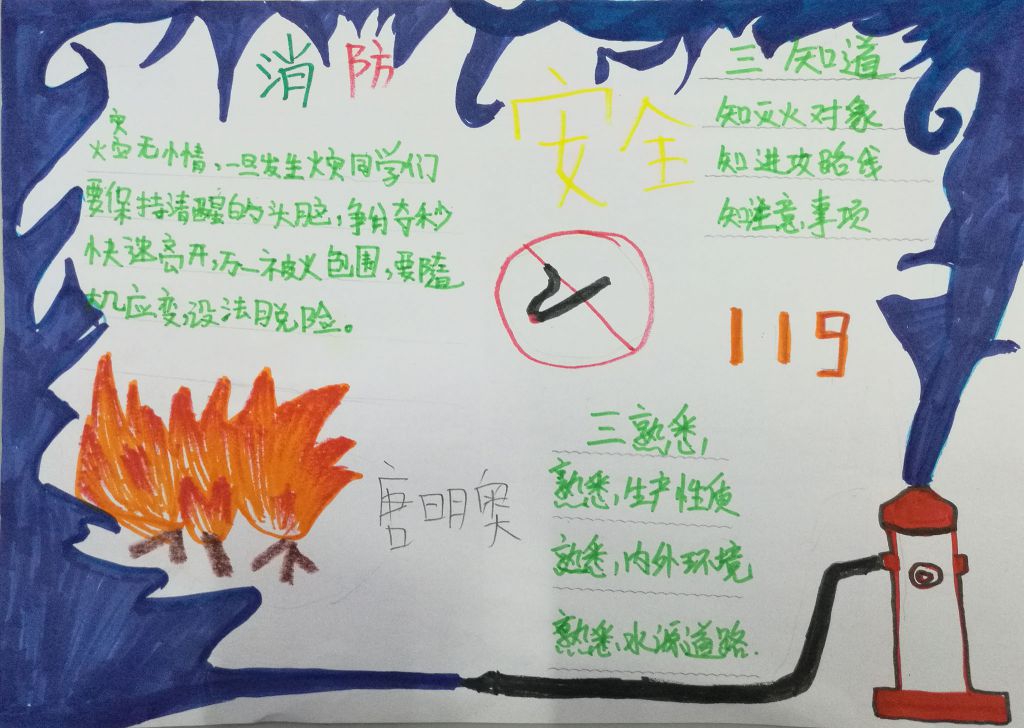 消防
安全
灾
火灾无情，一旦发生火灾同学们
要保持清醒的头脑，争分夺秒
快速离开，万一被火包围，要随
机应变，设法脱险。
三知道
知灭火对象
知进攻路线
知注意事项
119
三熟悉，
熟悉，生产性质
熟悉，内外环境
熟悉，水源道路.
唐明奥